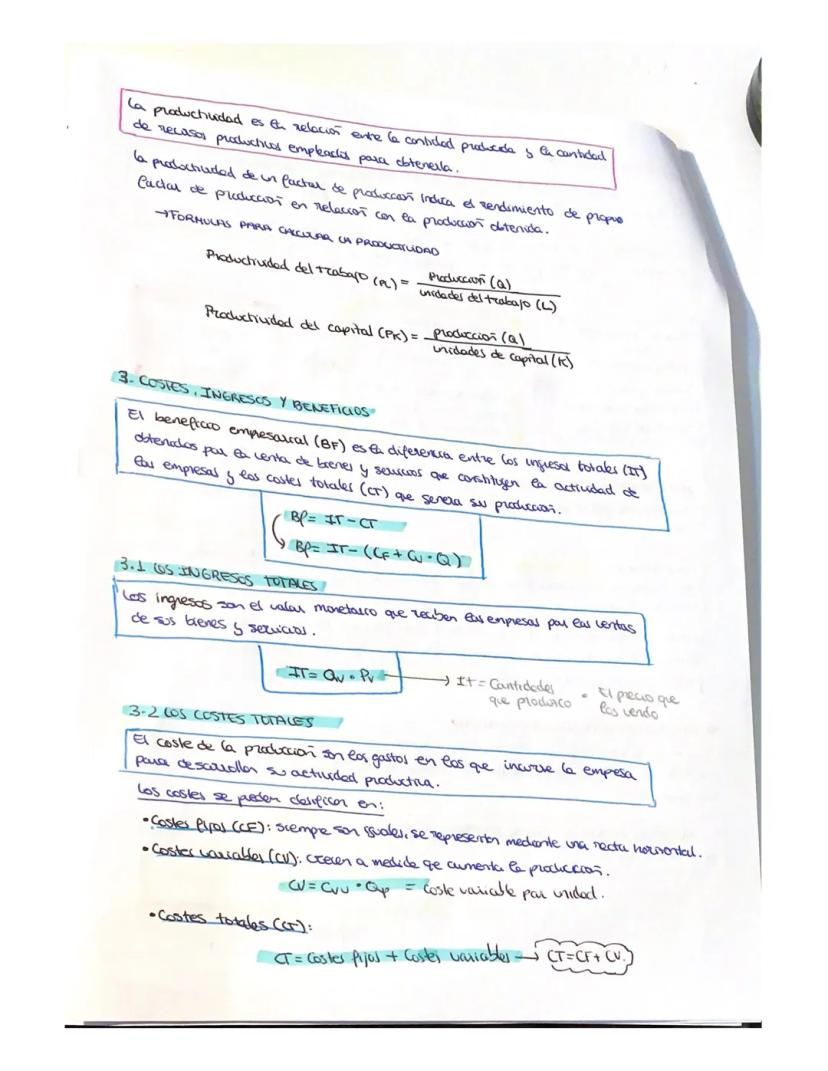 La productividad es la relación entre la cantidad producida y la cantidad
de recursos productivos empleados para obtenerla.
la productividad de un factor de producción indica el rendimiento de propio
factor de producción en relación con la producción obtenida.
→FORMULAS PARA CALCULAR LA PRODUCTIVIDAD
Productividad del trabajo (PL) = Producción (Q)
unidades del trabajo (L)
Productividad del capital (PK) = producción (Q)
unidades de capital (K)
3. COSTES, INGRESOS Y BENEFICIOS
El beneficio empresarial (BF) es la diferencia entre los ingresos totales (IT)
obtenidos por la venta de bienes y servicios que constituyen la actividad de
las empresas y los costes totales (CT) que genera su producción.
Bf= IT-CT
Bf= IT-(CF+CV·Q)
3.1 LOS INGRESOS TOTALES
Los ingresos son el valor monetario que reciben las empresas por las ventas
de sus bienes y servicios.
IT= Qv·Pv → It= Cantidades · El precio que
que produzco los vendo
3.2 LOS COSTES TOTALES
El coste de la producción son los gastos en los que incurre la empesa
para desarrollar su actividad productiva.
Los costes se pueden clasificar en:
•Costes fijos (CF): siempre son iguales, se representan mediante una recta horizontal.
•Costes variables (CV): crecen a medida qe aumenta la producción.
CV= CVU·Qp = coste variable por unidad.
•Costes totales (CT):
CT= costes fijos + Costes variables → CT=CF+CV.